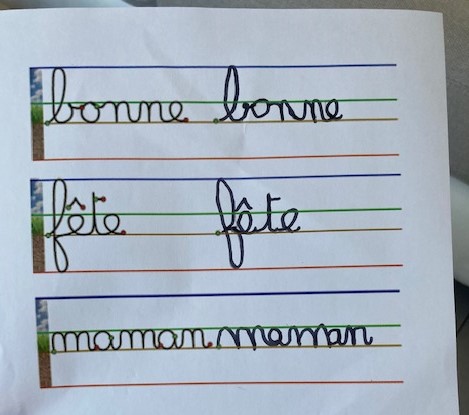 bonne bonne
fête fête
maman maman